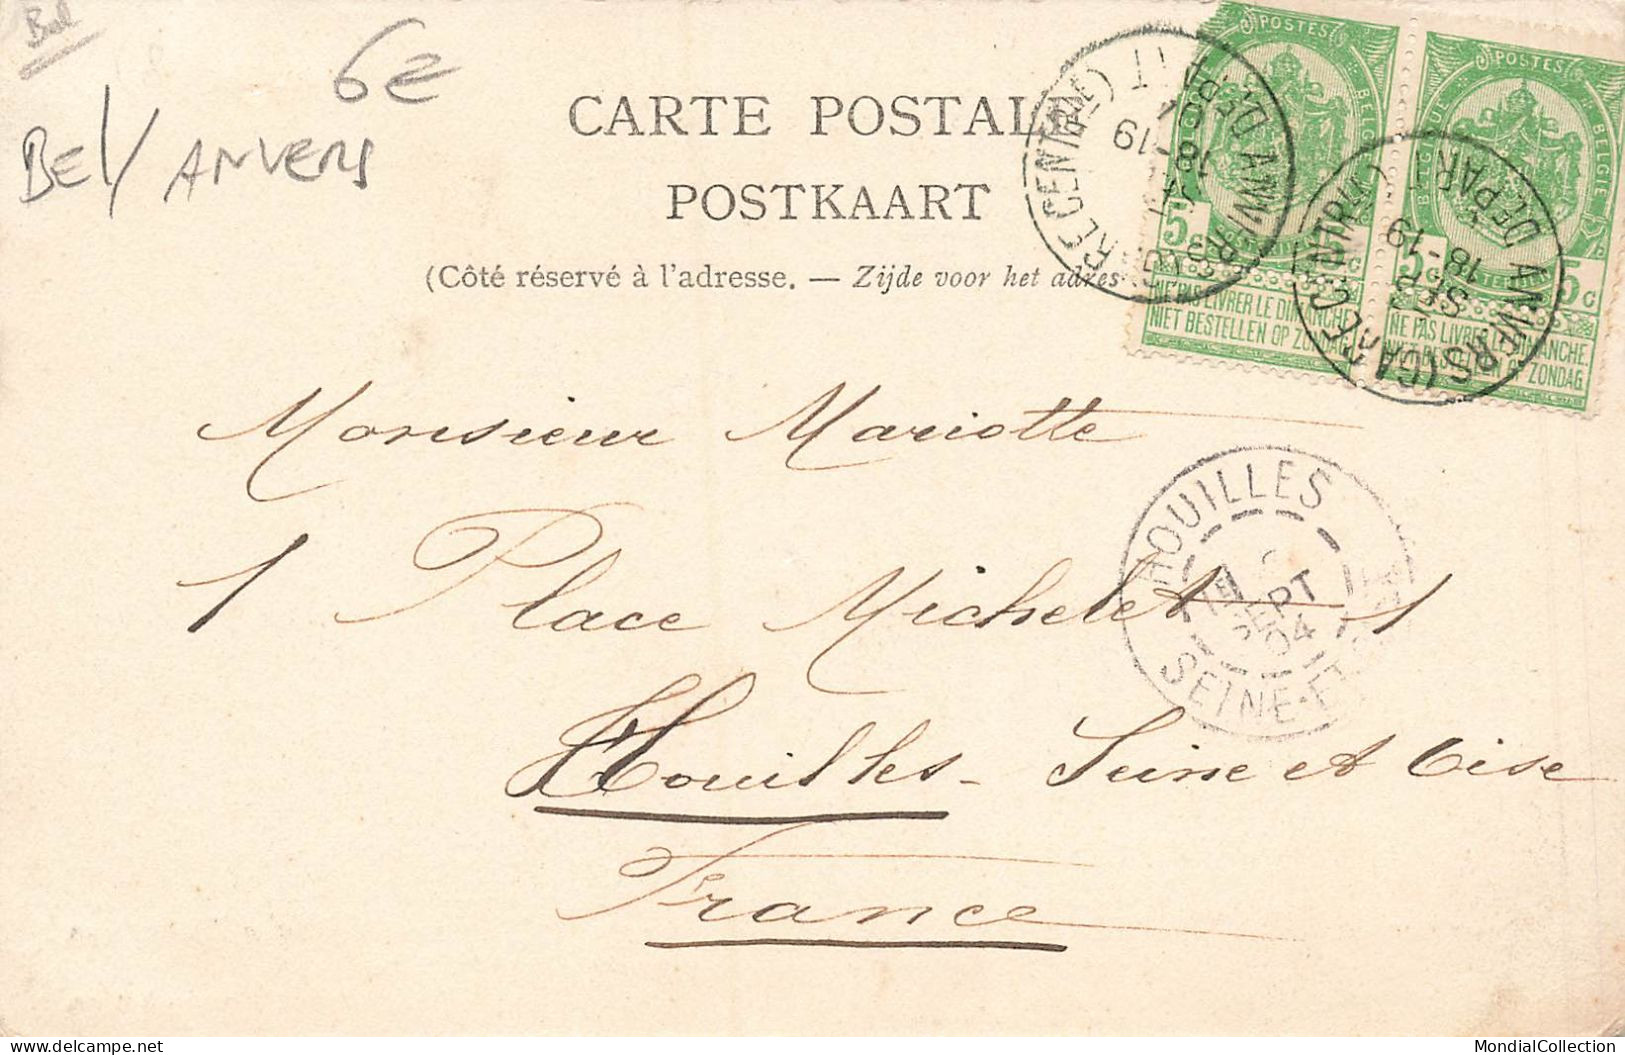 Bel
6€
Bel/ ANVERS
CARTE POSTALE
POSTKAART
(Côté réservé à l'adresse. — Zijde voor het adres
POSTES
BELGIQUE
BELGIE
5 c
5 c
NE PAS LIVRER LE DIMANCHE
NIET BESTELLEN OP ZONDAG
POSTES
BELGIQUE
BELGIE
5 c
5 c
NE PAS LIVRER LE DIMANCHE.
NIET BESTELLEN OP ZONDAG.
ANVERS (GARE CENTRALE)
DÉPART
1 SEPT
18-19
ANVERS (GARE CENTRALE)
DÉPART
SEPT
18-19
Monsieur Mariotte
1 Place Michelet 1
Houilles - Seine et Oise
France
HOUILLES
SEPT
04
SEINE-ET-OISE
www.delcampe.net
MondialCollection